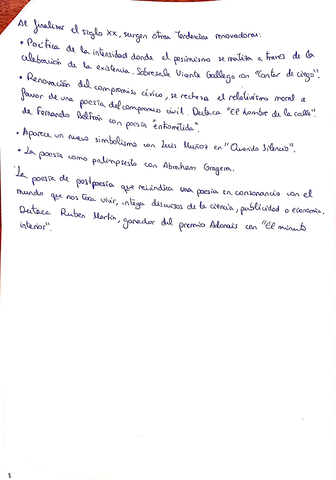 Al finalizar el siglo XX, surgen otras tendencias renovadoras:
• Poética de la intensidad donde el pesimismo se matiza a través de la
celebración de la existencia. Sobresale Vicente Gallego con "Cantar de ciego".
• Renovación del compromiso cívico, se rechaza el relativismo moral a
favor de una poesía del compromiso civil. Destaca "El hombre de la calle".
de Fernando Beltrán con poesía "entrometida".
• Aparece un nuevo simbolismo con Luis Muñoz en "Querido silencio".
• La poesía como palimpsesto con Abraham Gragera.
La poesía de postpoesía que reivindica una poesía en consonancia con el
mundo que nos toca vivir, integra discursos de la ciencia, publicidad o economía.
Destaca Ruben Martín, ganador del premio Adonais con "El minuto
interior".